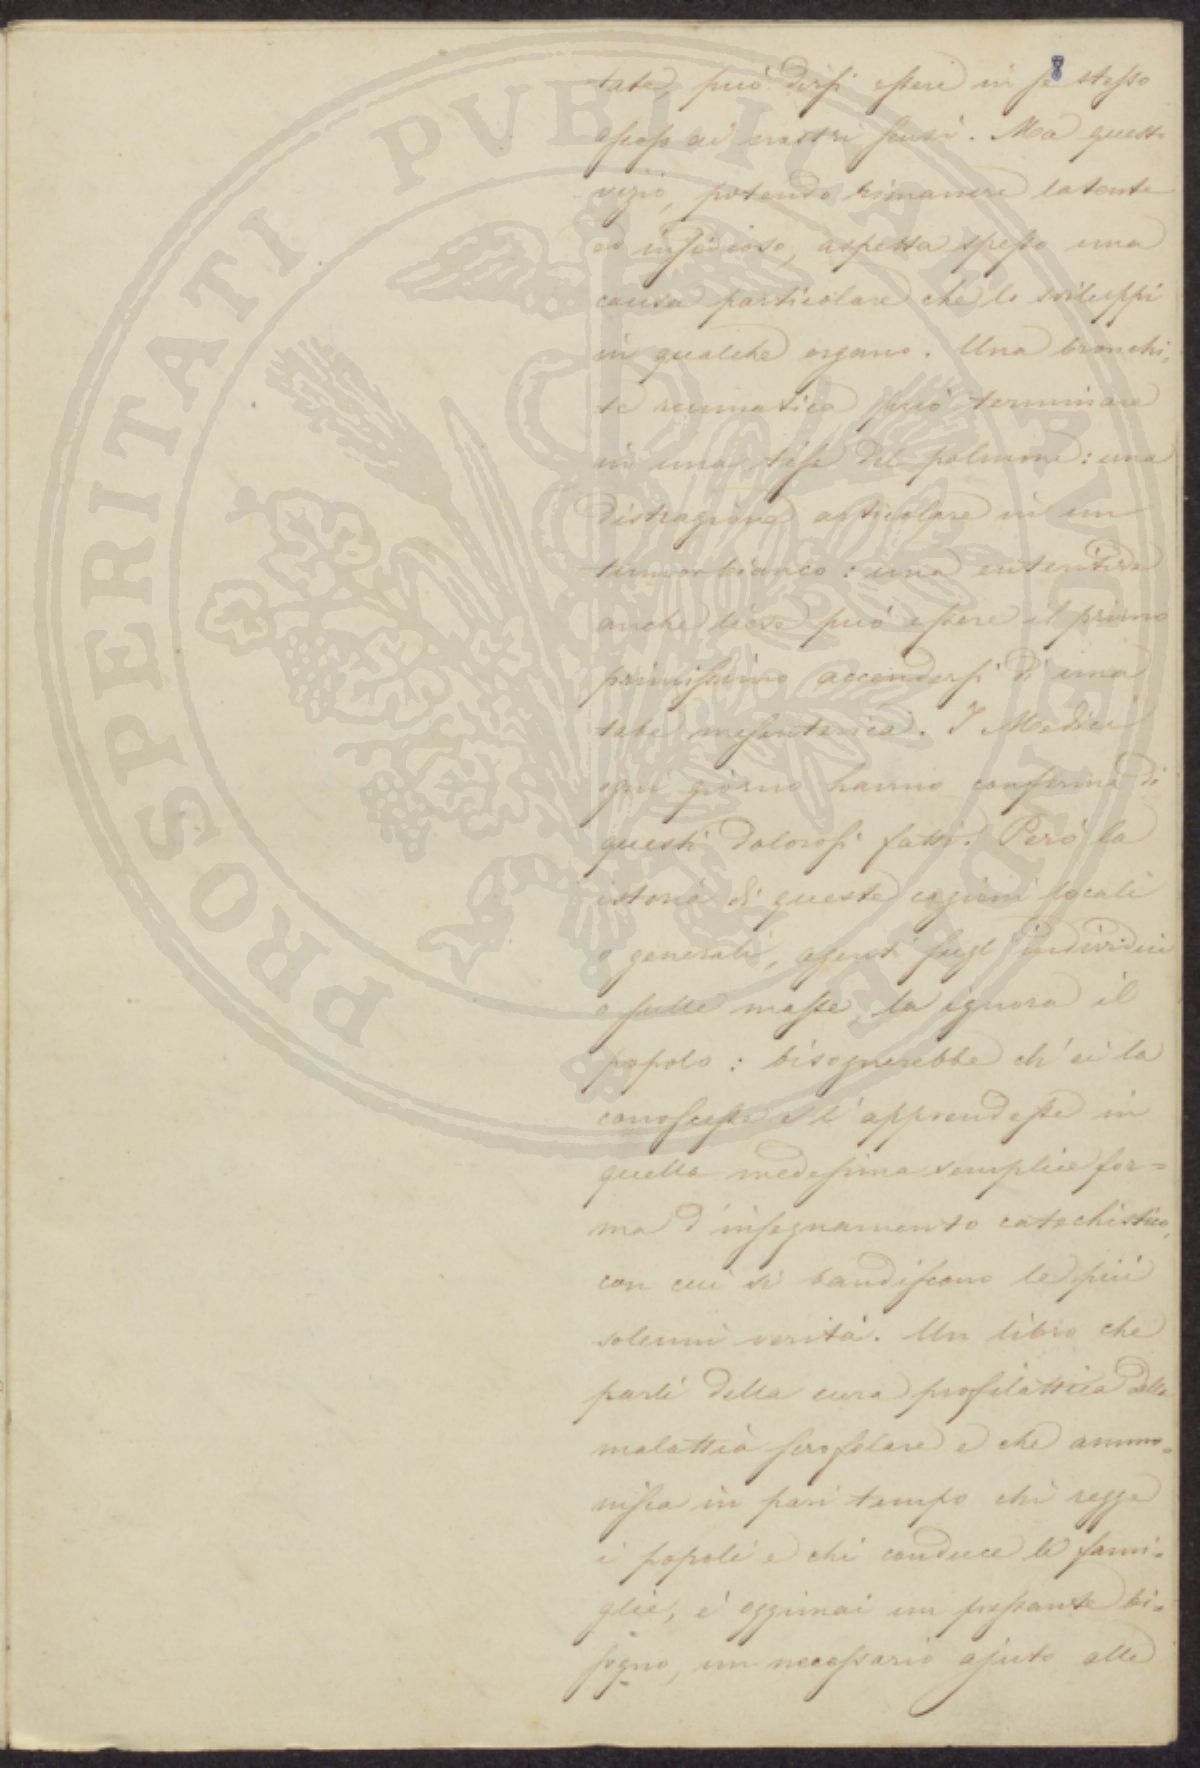 8
tate, può dirsi essere in se stesso
ascoso ai nostri sensi. Ma questo
vizio, potendo rimanere latente
od insidioso, aspetta spesso una
causa particolare che lo sviluppi
in qualche organo. Una bronchi,
te reumatica può terminare
in una tisi del polmone: una
distrazione articolare in un
tumor bianco: una enteritide
anche lieve può essere il primo
primissimo accendersi di una
tabe mesenterica. I Medici
ogni giorno hanno conferma di
questi dolorosi fatti. Però la
istoria di queste cagioni locali
o generali, agenti sugl'individui
o sulle masse, la ignora il
popolo: bisognerebbe ch'ei la
conoscesse e l'apprendesse in
quella medesima semplice for=
ma d'insegnamento catechistico,
con cui si bandiscono le più
solenni verità. Un libro che
parli della cura profilattica della
malattia scrofolare e che ammo=
nisca in pari tempo chi regge
i popoli e chi conduce le fami=
glie, è oggimai un pressante bi=
sogno, un necessario ajuto alle
PROSPERITATI PUBLICAE AUGENDAE